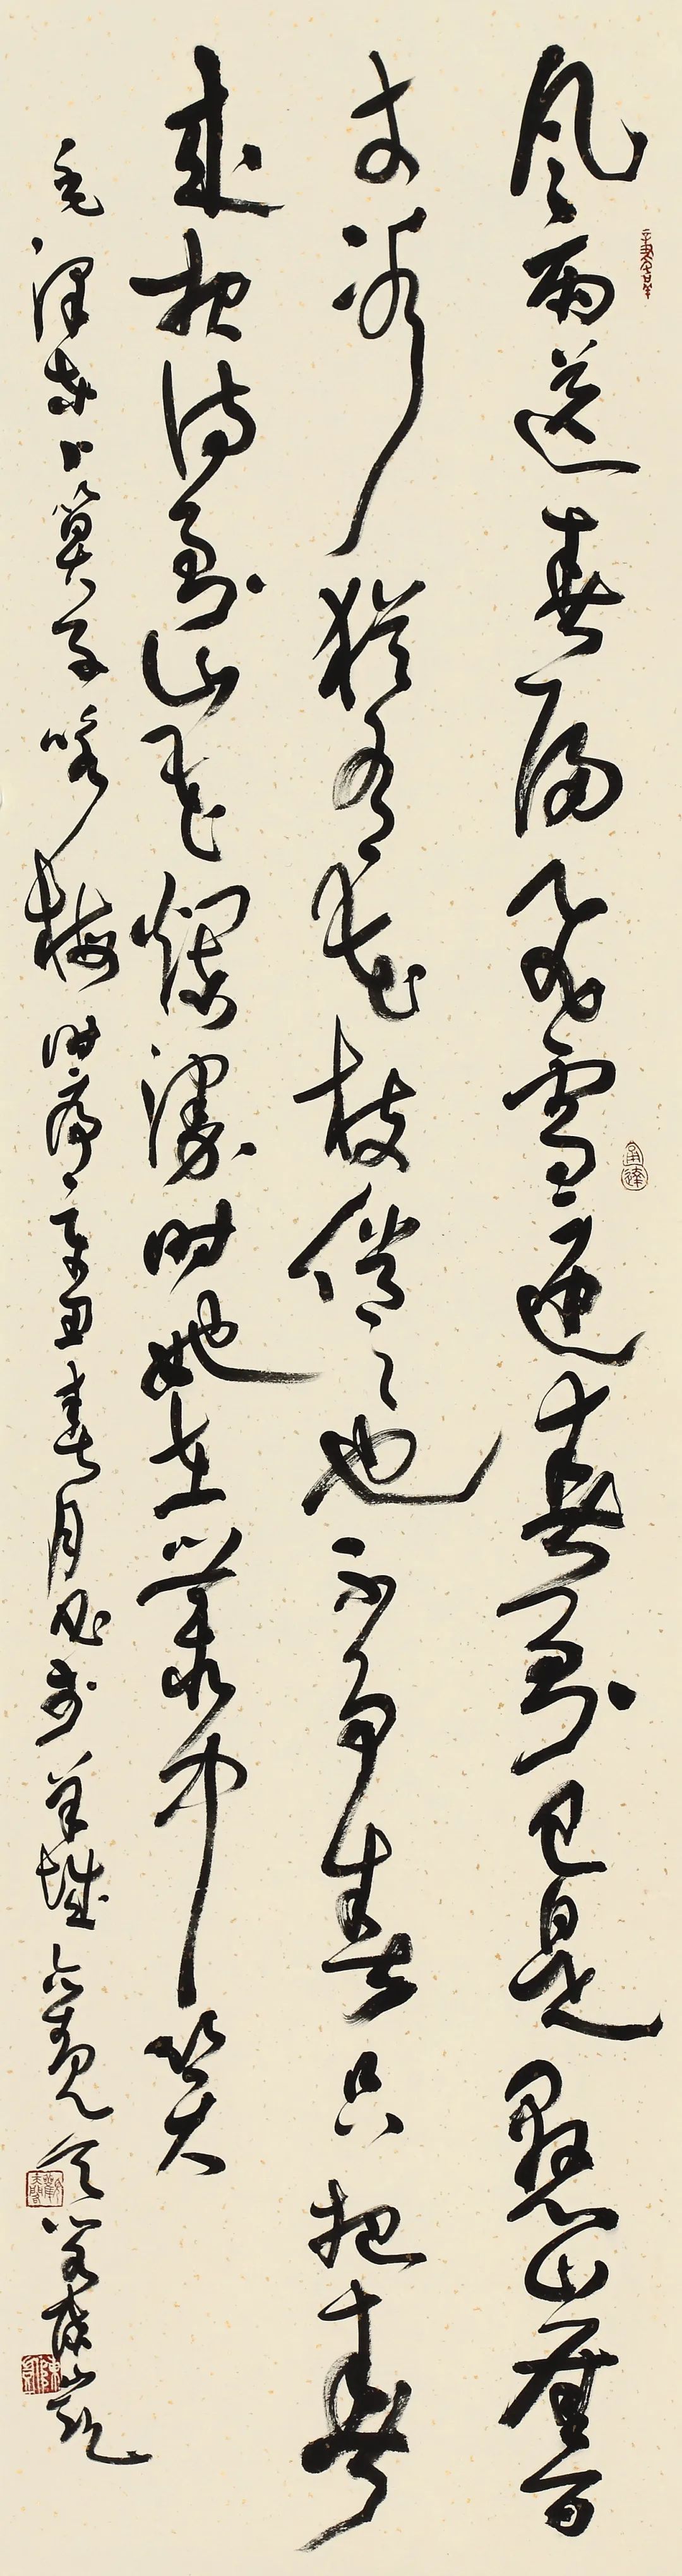 風雨送春歸飛雪迎春到已是懸崖百
丈冰猶有花枝俏俏也不爭春只把春
來報待到山花爛漫時她在叢中笑
毛澤東卜算子咏梅 辛丑春月 於羊城
通達